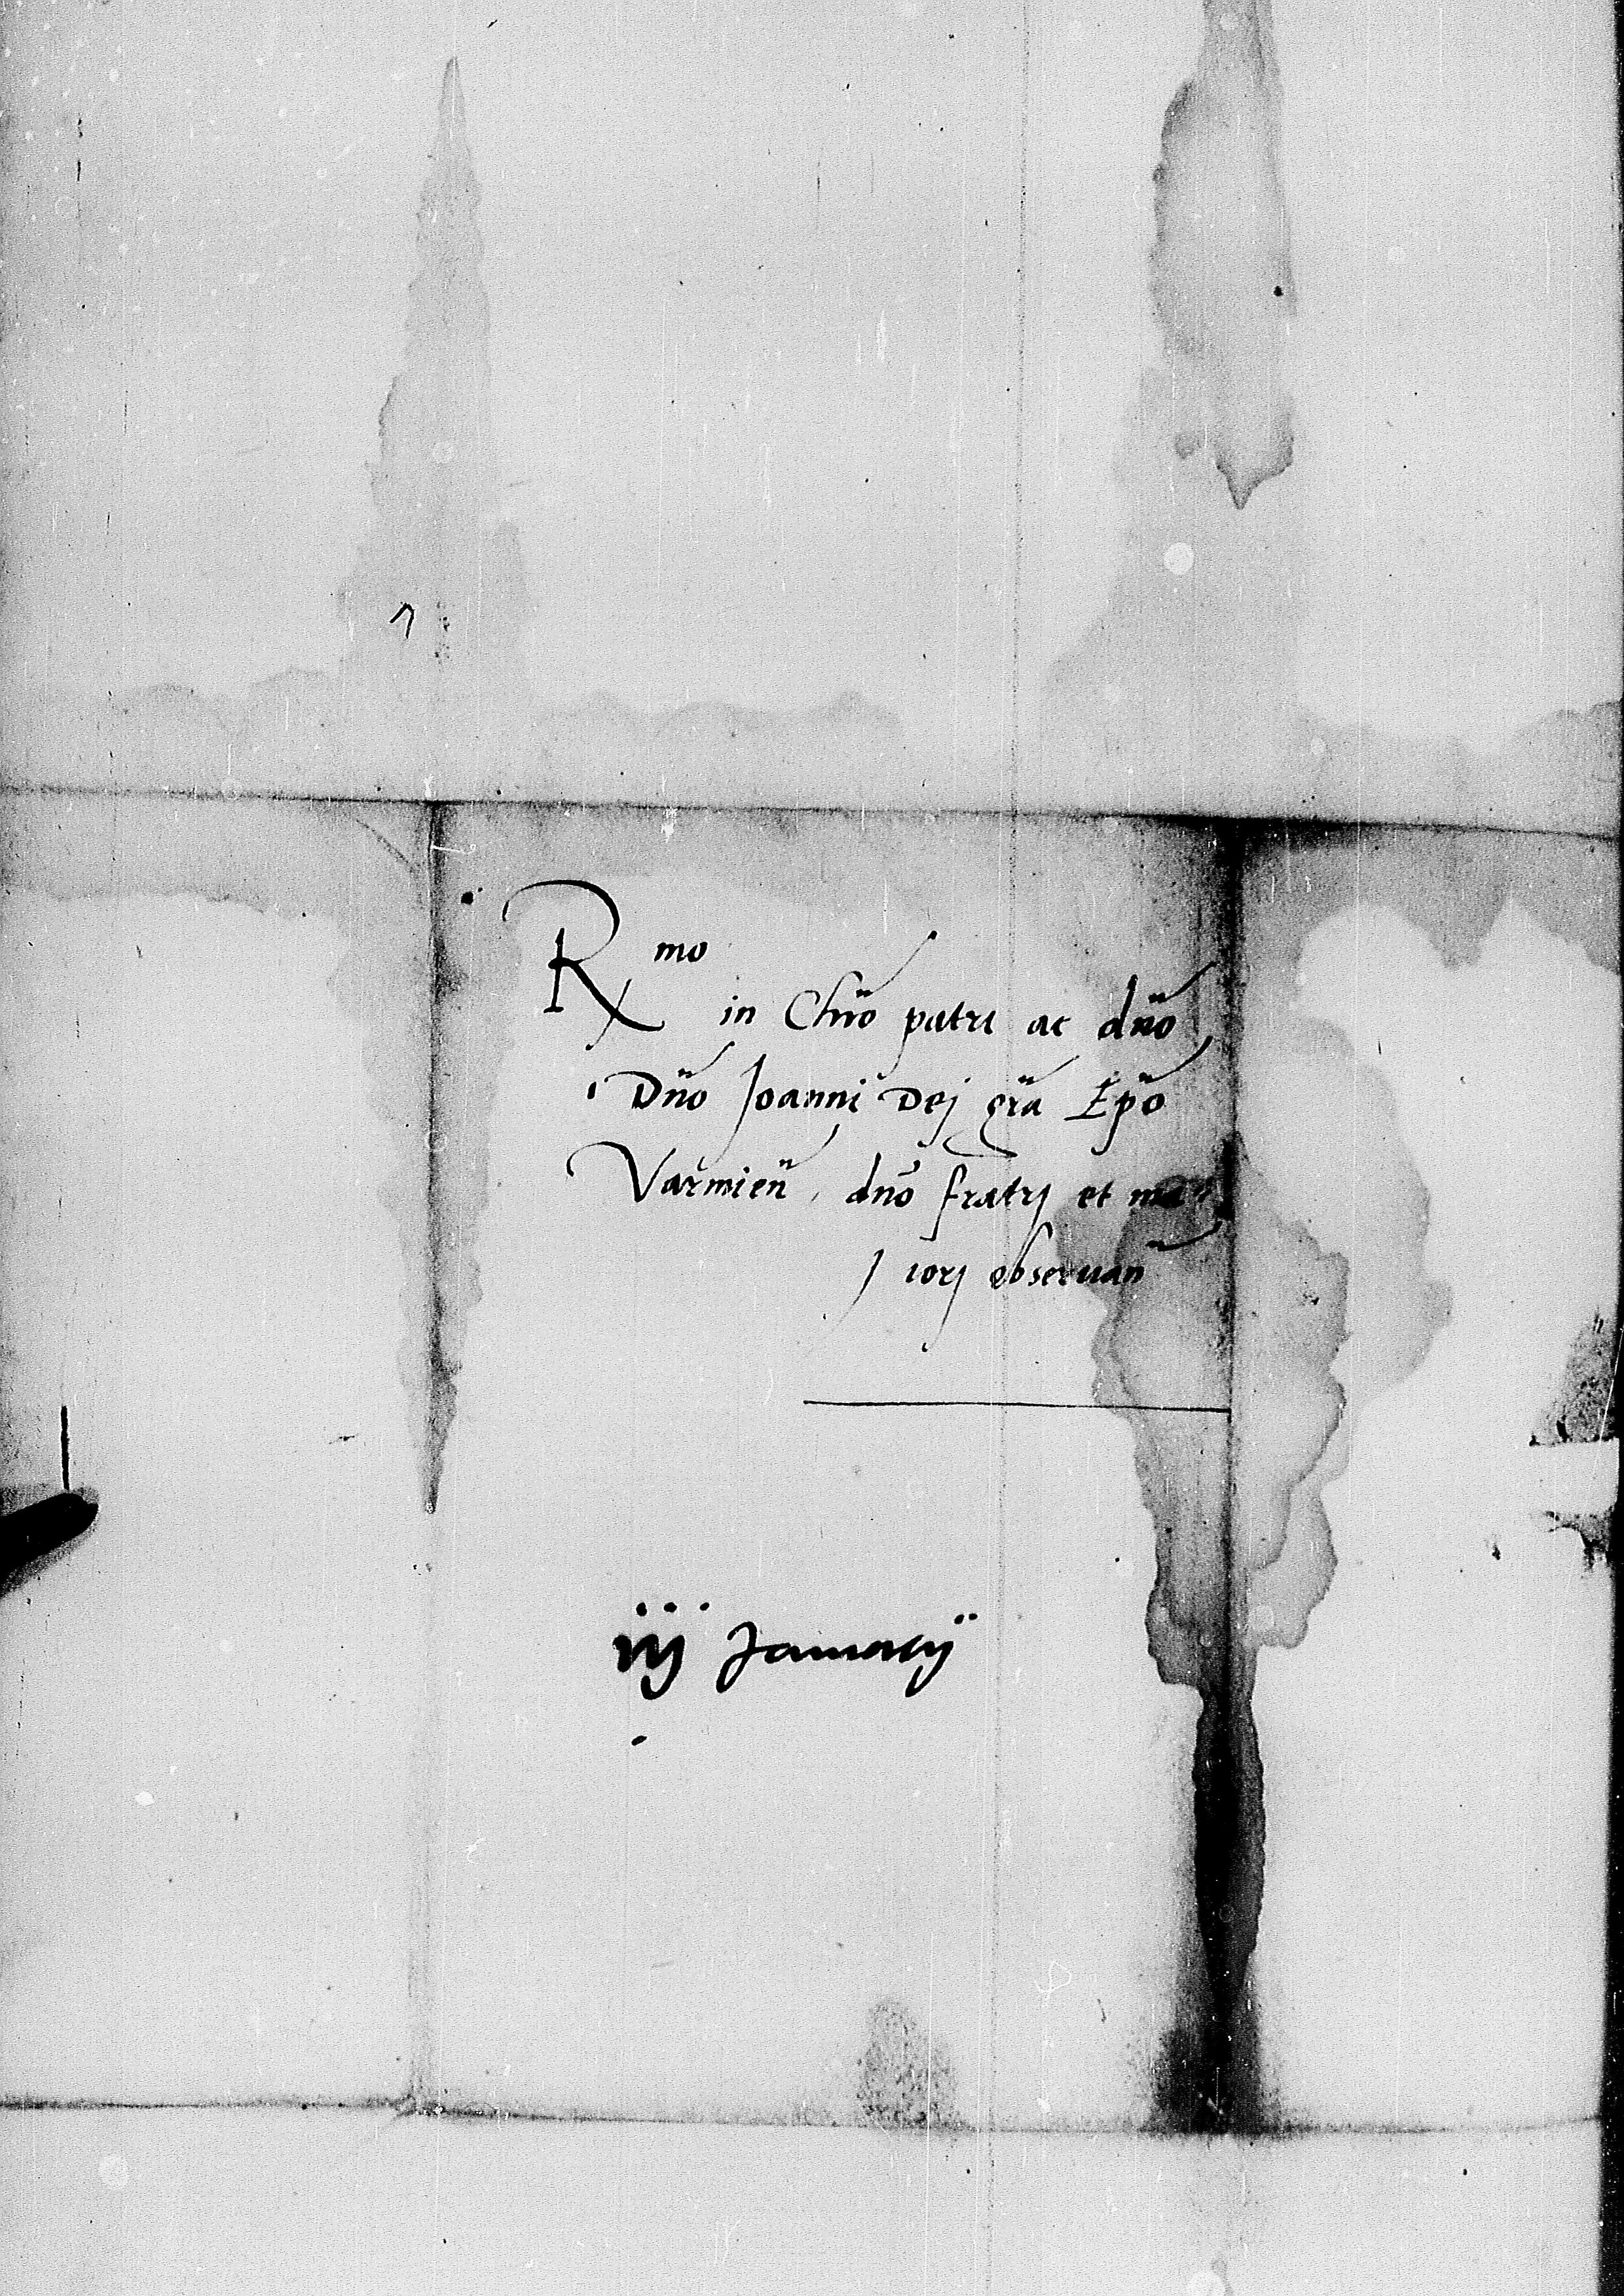 R mo
in Chr̃o patri ac dño
Dño Joanni Dej gr̃a Ep̃o
Varmieñ, dño fratrj et ma
iorj obseruañ
iij Januarij